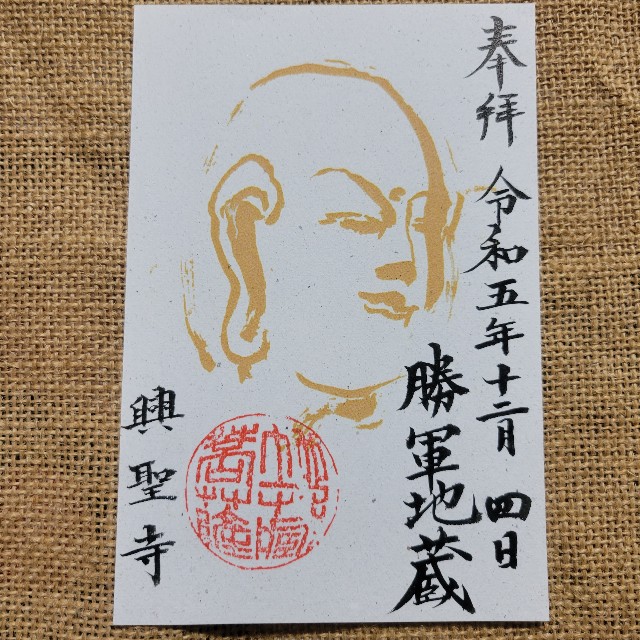 奉拝 令和五年十二月 四日
勝軍地蔵
興聖寺